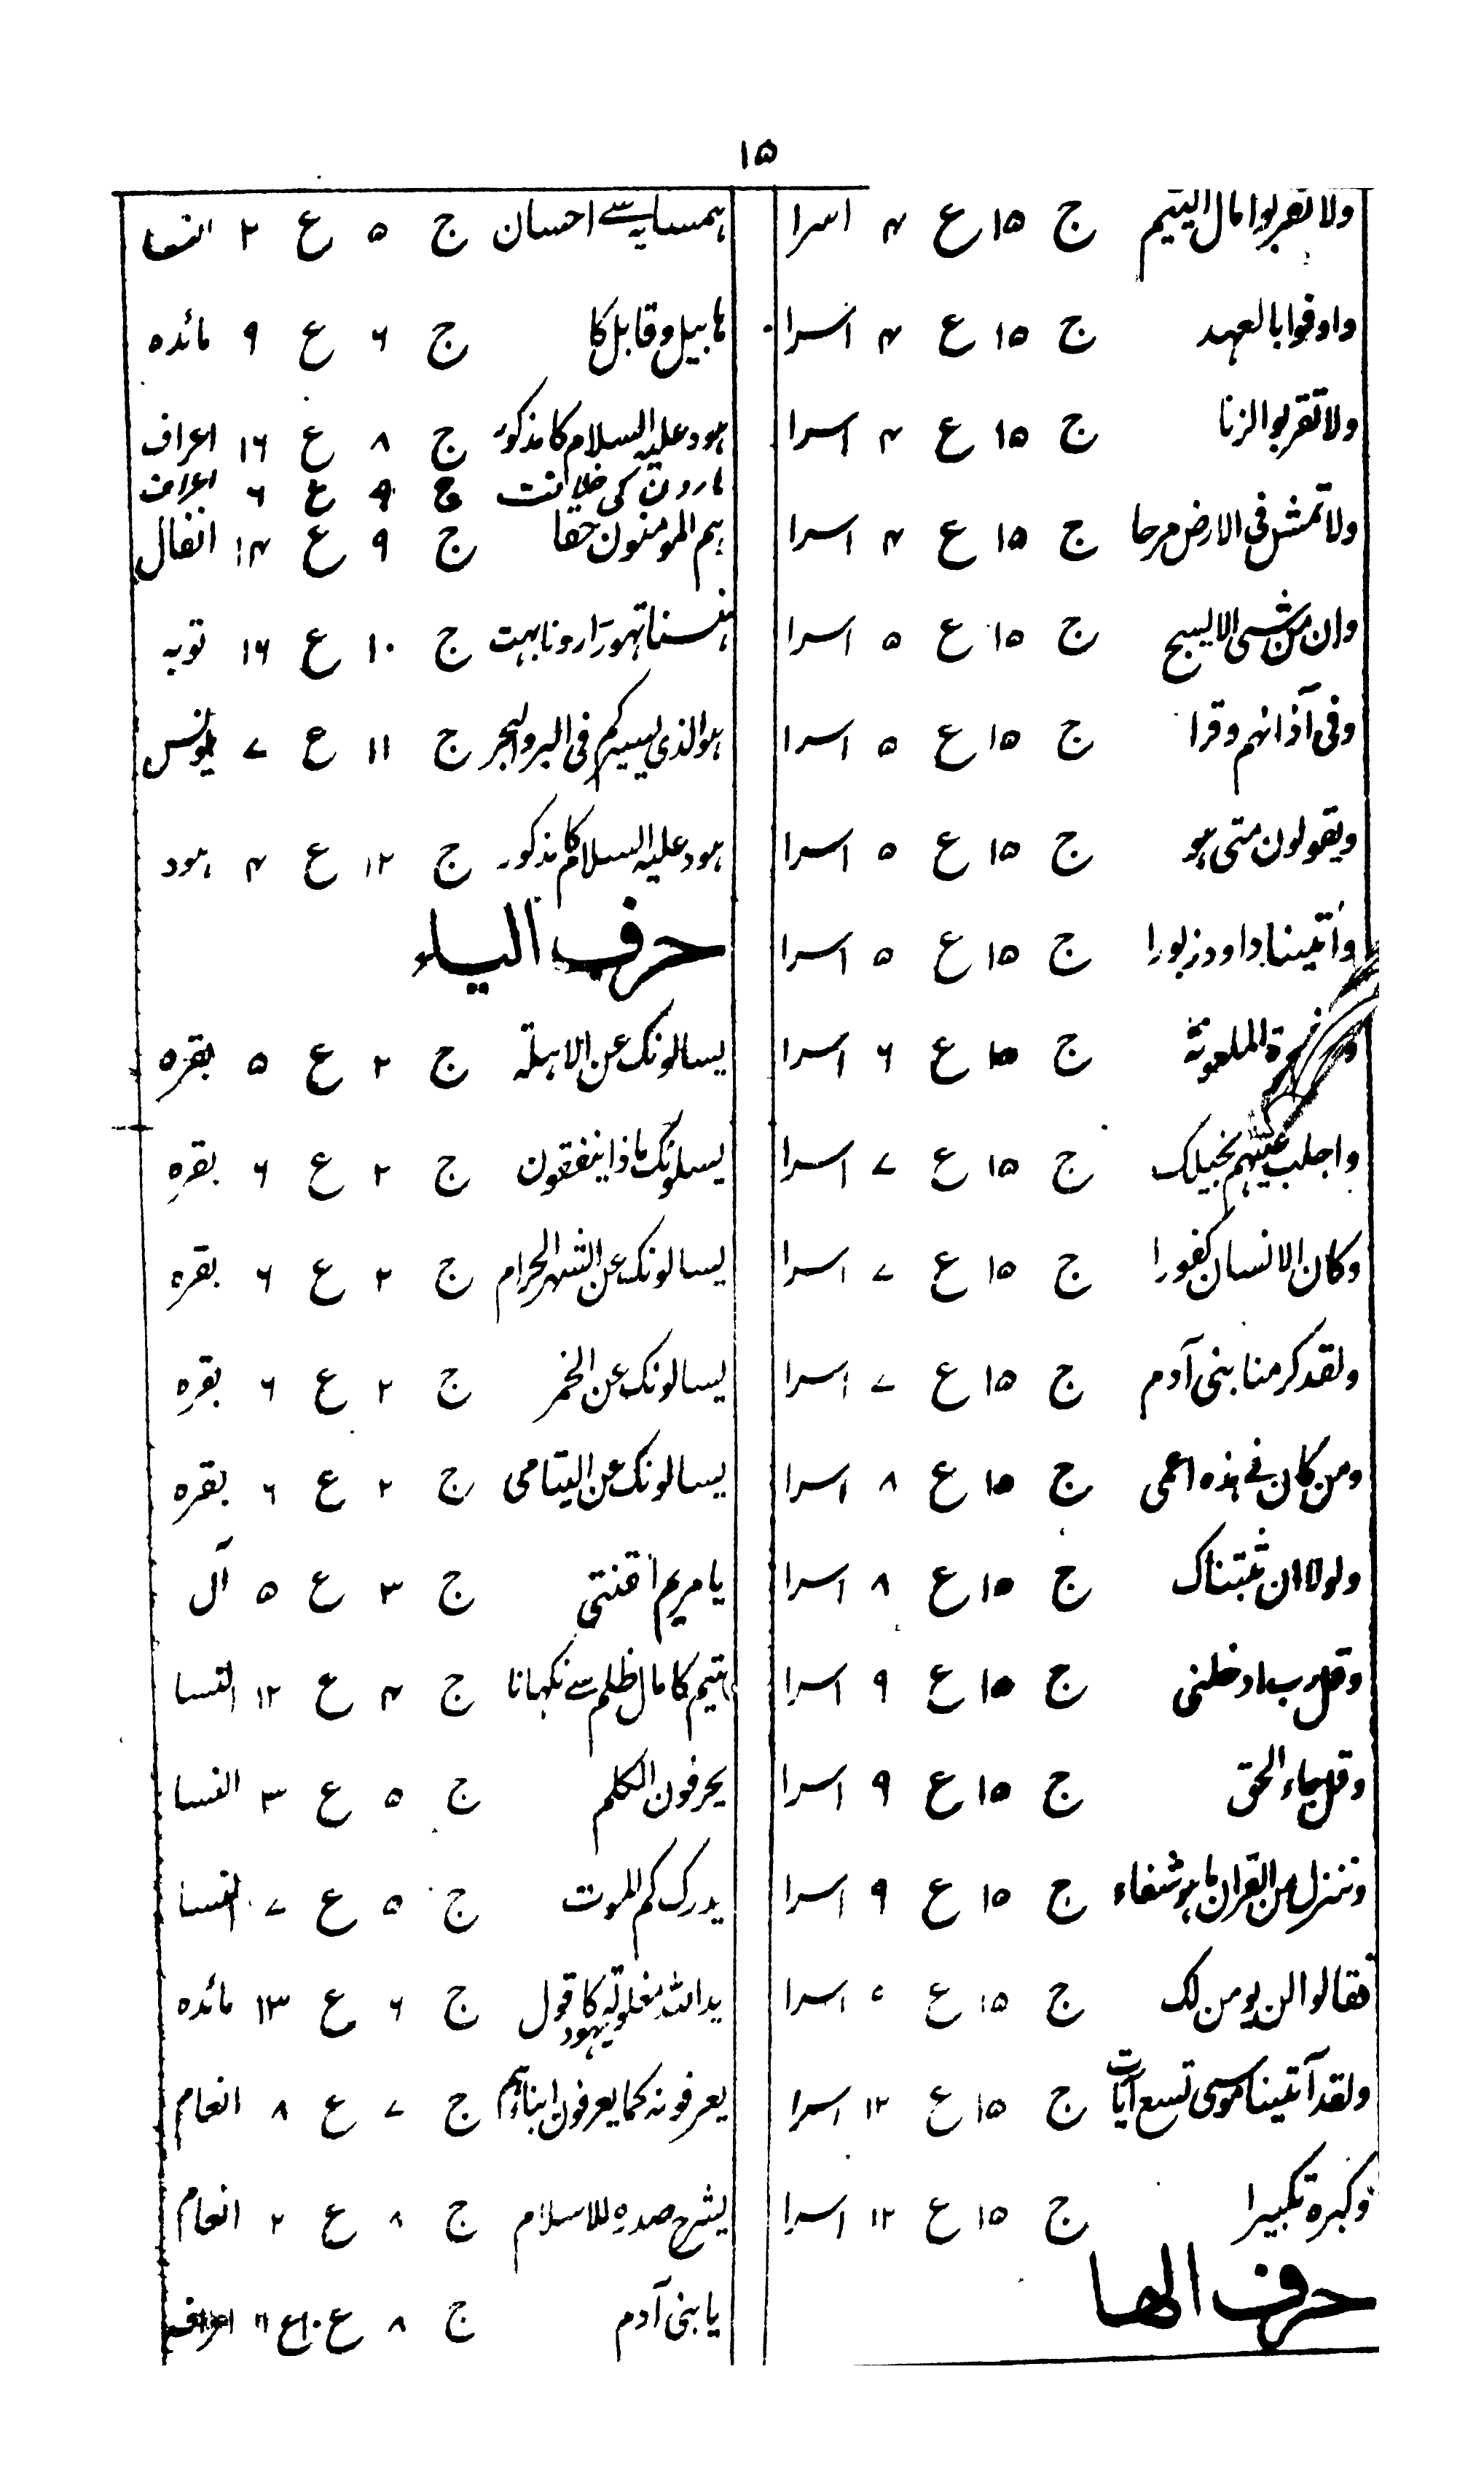 ۱۵
ولا تقربوا مال الیتیم ج ۱۵ ع ۴ اسرا
واوفوا بالعہد ج ۱۵ ع ۴ اسرا
ولا تقربوا الزنا ج ۱۵ ع ۴ اسرا
ولا تمش فی الارض مرحا ج ۱۵ ع ۴ اسرا
وان من شی الا یسبح ج ۱۵ ع ۵ اسرا
وفی آذانہم وقرا ج ۱۵ ع ۵ اسرا
ویقولون متی ہو ج ۱۵ ع ۵ اسرا
واٰتینا داود زبورا ج ۱۵ ع ۵ اسرا
الملعونۃ ج ۱۵ ع ۶ اسرا
واجلب علیہم بخیلک ج ۱۵ ع ۷ اسرا
وکان الانسان کفورا ج ۱۵ ع ۷ اسرا
ولقد کرمنا بنی آدم ج ۱۵ ع ۷ اسرا
ومن کان فی ہذہ اعمی ج ۱۵ ع ۸ اسرا
ولولا ان ثبتناک ج ۱۵ ع ۸ اسرا
وقل رب ادخلنی ج ۱۵ ع ۹ اسرا
وقل جاء الحق ج ۱۵ ع ۹ اسرا
وننزل من القران ما ہو شفاء ج ۱۵ ع ۹ اسرا
وقالوا لن یومن لک ج ۱۵ ع اسرا
ولقد آتینا موسی تسع آیات ج ۱۵ ع ۱۲ اسرا
وکبرہ تکبیرا ج ۱۵ ع ۱۲ اسرا
حرف الھا
ہمسایہ سے احسان ج ۵ ع ۲ النسا
ہابیل وقابل کا ج ۶ ع ۹ مائدہ
ہود علیہ السلام کا مذکور ج ۸ ع ۱۶ اعراف
ہارون کی خلافت ج ۹ ع ۶ اعراف
ہم المومنون حقا ج ۹ ع ۱۴ انفال
ہنسنا تہوڑا رونا بہت ج ۱۰ ع ۱۶ توبہ
ہو الذی یسیرکم فی البر والبحر ج ۱۱ ع ۷ یونس
ہود علیہ السلام کا مذکور ج ۱۲ ع ۴ ہود
حرف الیاء
یسالونک عن الاہلہ ج ۲ ع ۵ بقرہ
یسلونک ماذا ینفقون ج ۲ ع ۶ بقرہ
یسالونک عن الشہر الحرام ج ۲ ع ۶ بقرہ
یسالونک عن الخمر ج ۲ ع ۶ بقرہ
یسالونک عن الیتامی ج ۲ ع ۶ بقرہ
یا مریم اقنتی ج ۳ ع ۵ آل
یتیم کا مال ظلم سے نکہانا ج ۴ ع ۱۲ النسا
یحرفون الکلم ج ۵ ع ۳ النسا
یدرک کم الموت ج ۵ ع ۷ النسا
ید اللہ مغلولۃ یہود کا قول ج ۶ ع ۱۳ مائدہ
یعرفونہ کما یعرفون ابناءہم ج ۷ ع ۸ انعام
یشرح صدرہ للاسلام ج ۸ ع ۲ انعام
یا بنی آدم ج ۸ ع ۱۰ ع ۱۱ اعراف